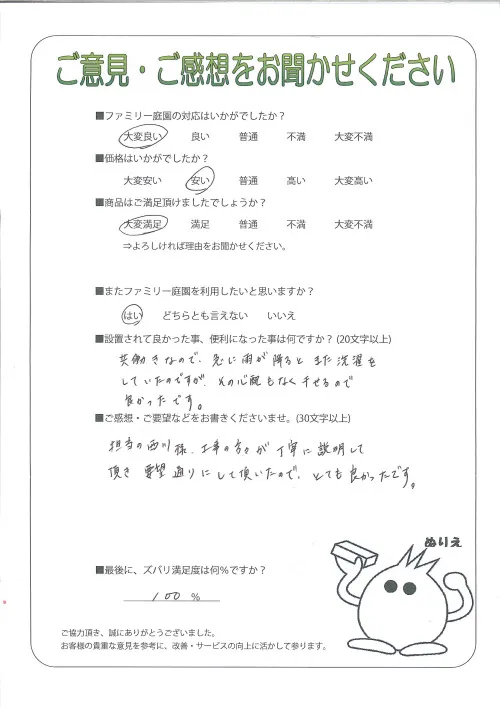 ご意見・ご感想をお聞かせください
■ファミリー庭園の対応はいかがでしたか？
大変良い 良い 普通 不満 大変不満
■価格はいかがでしたか？
大変安い 安い 普通 高い 大変高い
■商品はご満足頂けましたでしょうか？
大変満足 満足 普通 不満 大変不満
⇒よろしければ理由をお聞かせください。
■またファミリー庭園を利用したいと思いますか？
はい どちらとも言えない いいえ
■設置されて良かった事、便利になった事は何ですか？(20文字以上)
共働きなので、急に雨が降ると また洗濯を
していたのですが、その心配もなく干せるので
良かったです。
■ご感想・ご要望などをお書きくださいませ。(30文字以上)
担当の西川様、工事の方々が丁寧に説明して
頂き 要望通りにして頂いたので、とても良かったです。
ぬりえ
■最後に、ズバリ満足度は何％ですか？
100 ％
ご協力頂き、誠にありがとうございました。
お客様の貴重な意見を参考に、改善・サービスの向上に活かして参ります。